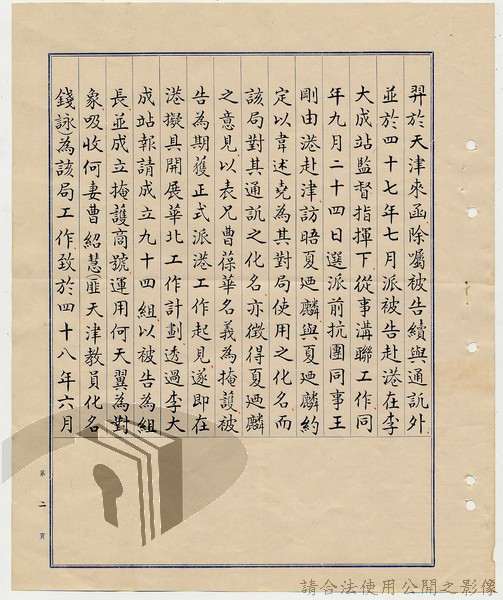 羿於天津來函除囑被告續與通訊外
並於四十七年七月派被告赴港在李
大成站監督指揮下從事溝聯工作同
年九月二十四日選派前抗團同事王
剛由港赴津訪晤夏迺麟與夏迺麟約
定以韋述堯為其對局使用之化名而
該局對其通訊之化名亦徵得夏迺麟
之意見以表兄曹葆華名義為掩護被
告為期獲正式派港工作起見遂即在
港擬具開展華北工作計劃透過李大
成站報請成立九十四組以被告為組
長並成立掩護商號運用何天翼為對
象吸收何妻曹紹慧(匪天津教員化名
錢詠)為該局工作致於四十八年六月
第二頁
請合法使用公開之影像